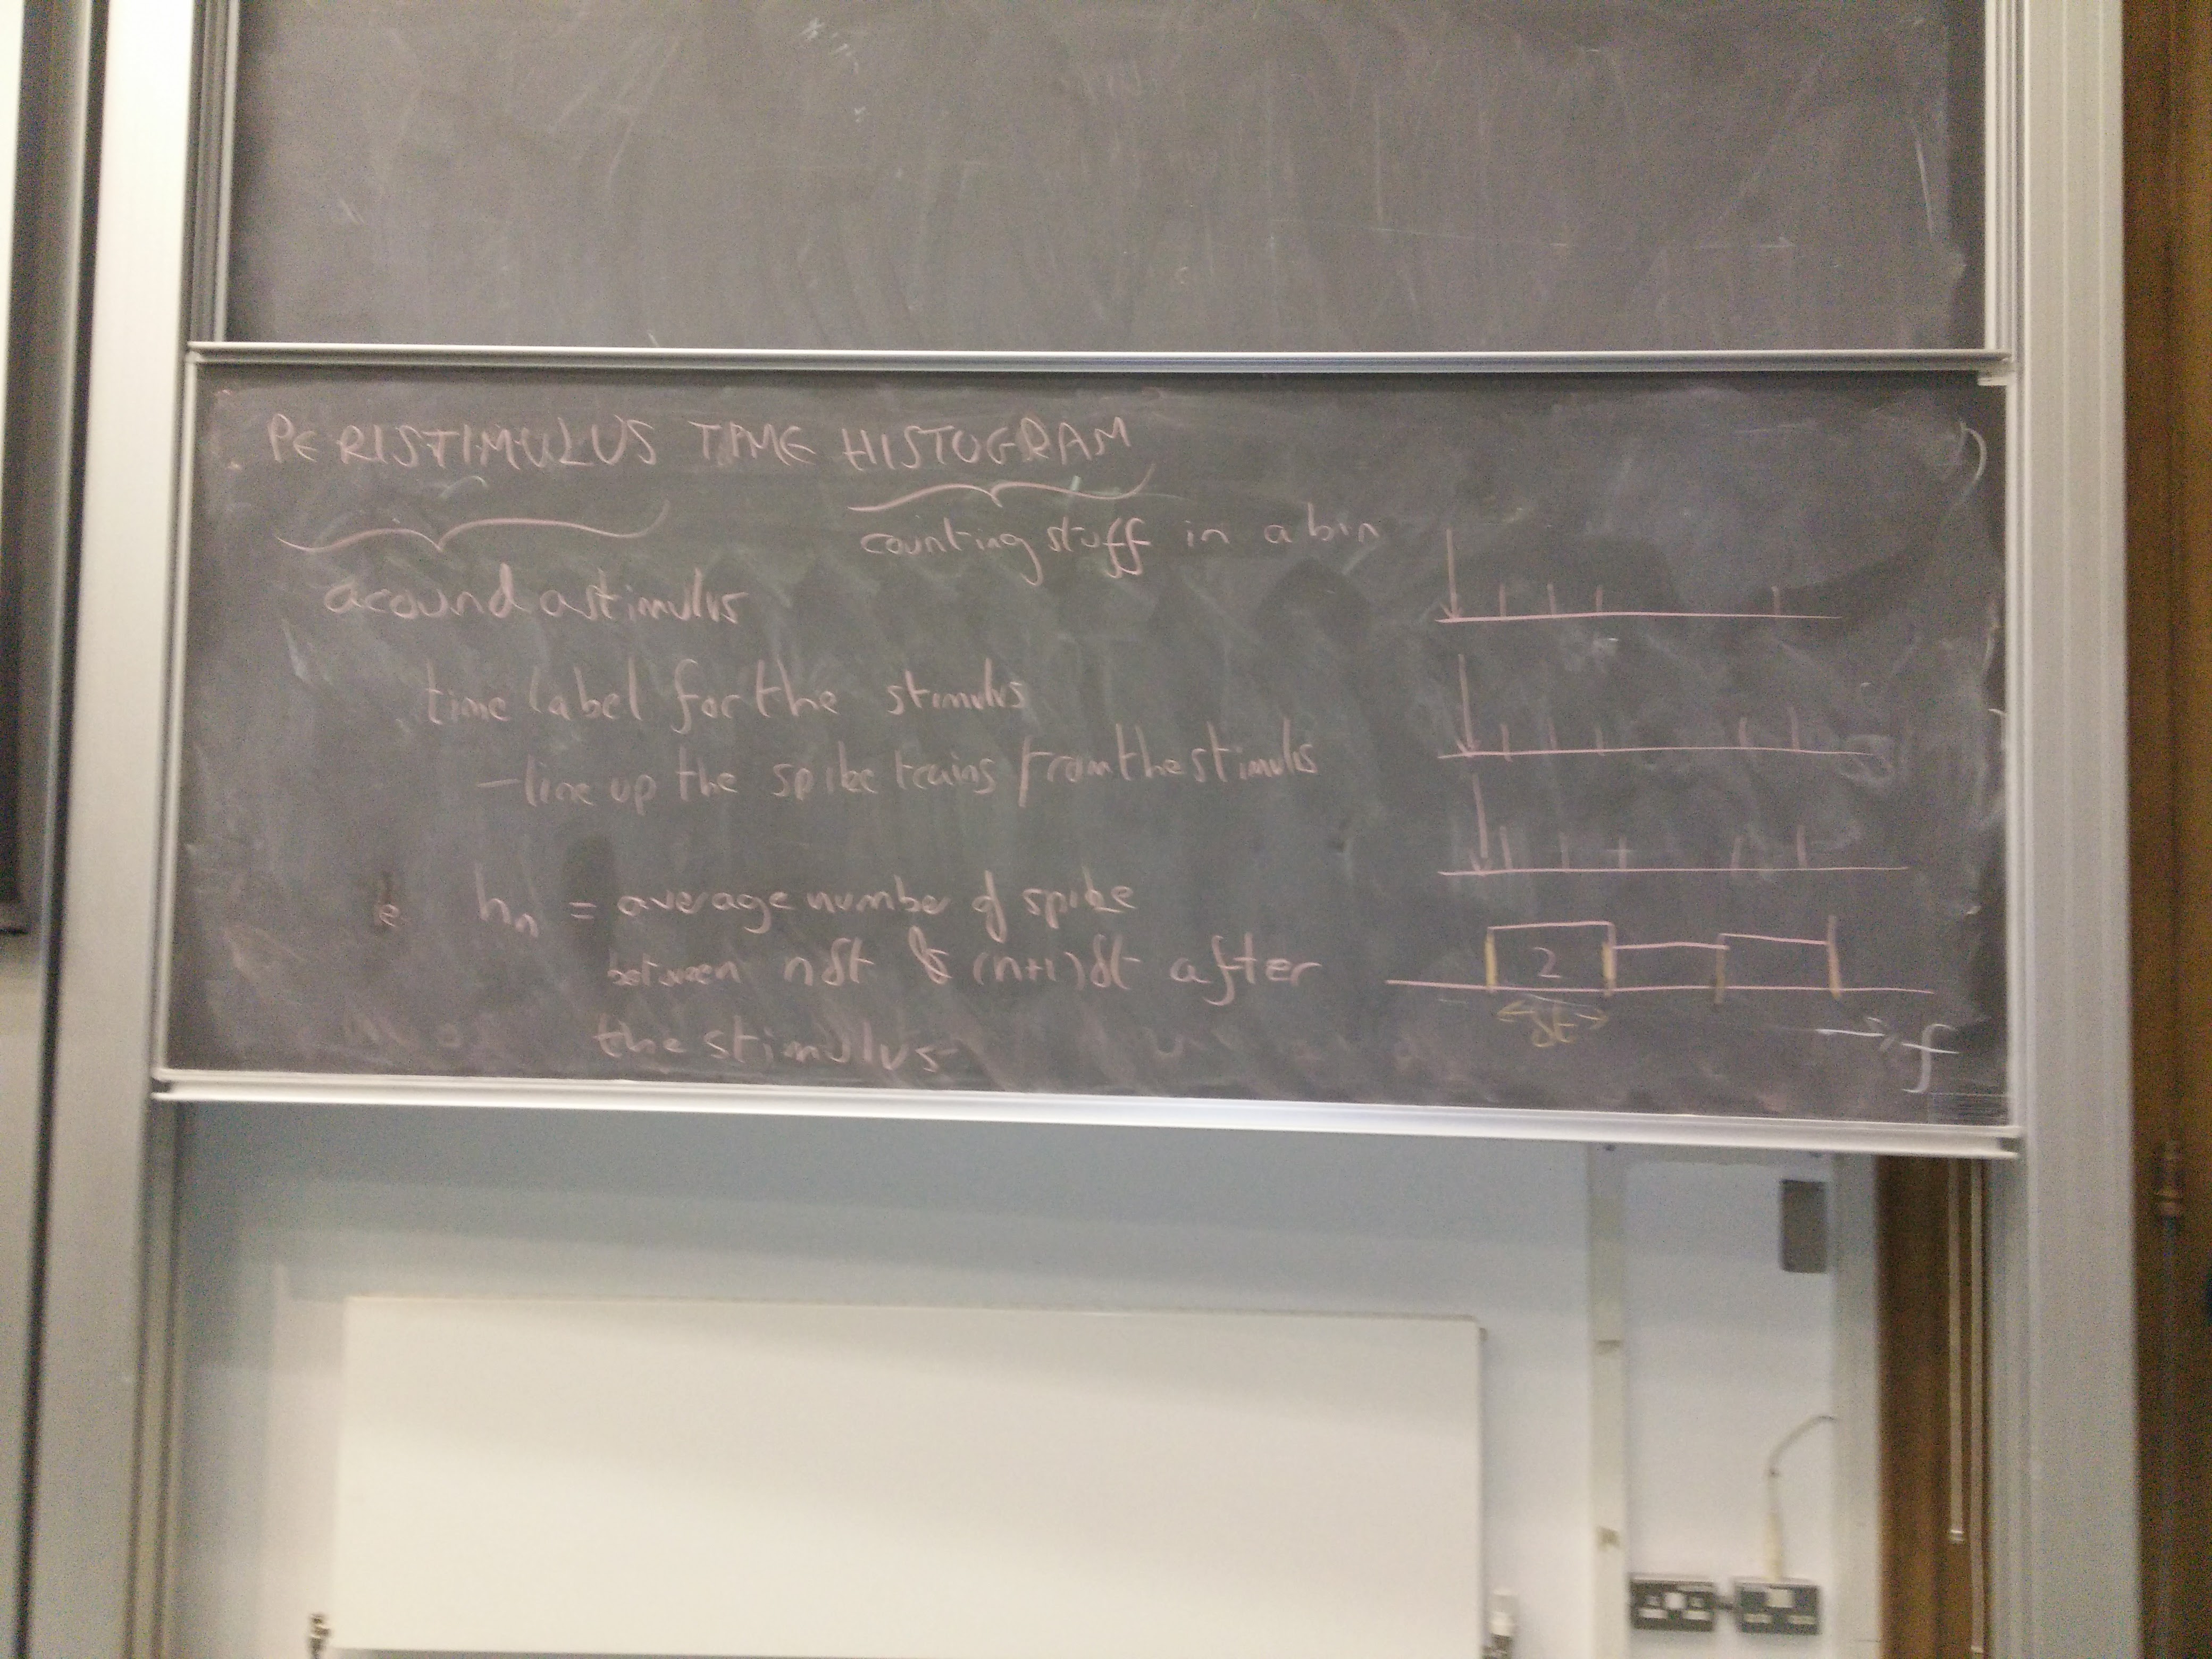 PERISTIMULUS TIME HISTOGRAM
counting stuff in a bin
around a stimulus
time label for the stimulus
- line up the spike trains from the stimulus
ie hn = average number of spike
between nδt & (n+1)δt after
the stimulus
2
δt